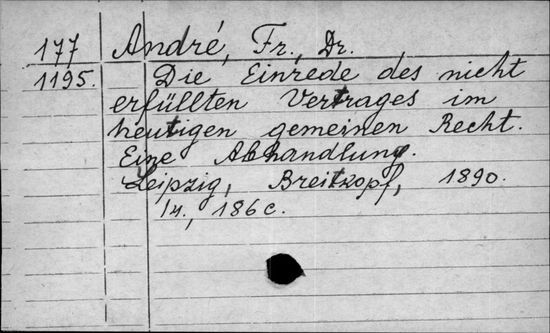 177 André, Fr., Dr.
1195. Die Einrede des nicht
erfüllten Vertrages im
heutigen gemeinen Recht.
Eine Abhandlung.
Leipzig, Breitkopf, 1890.
14., 186 c.